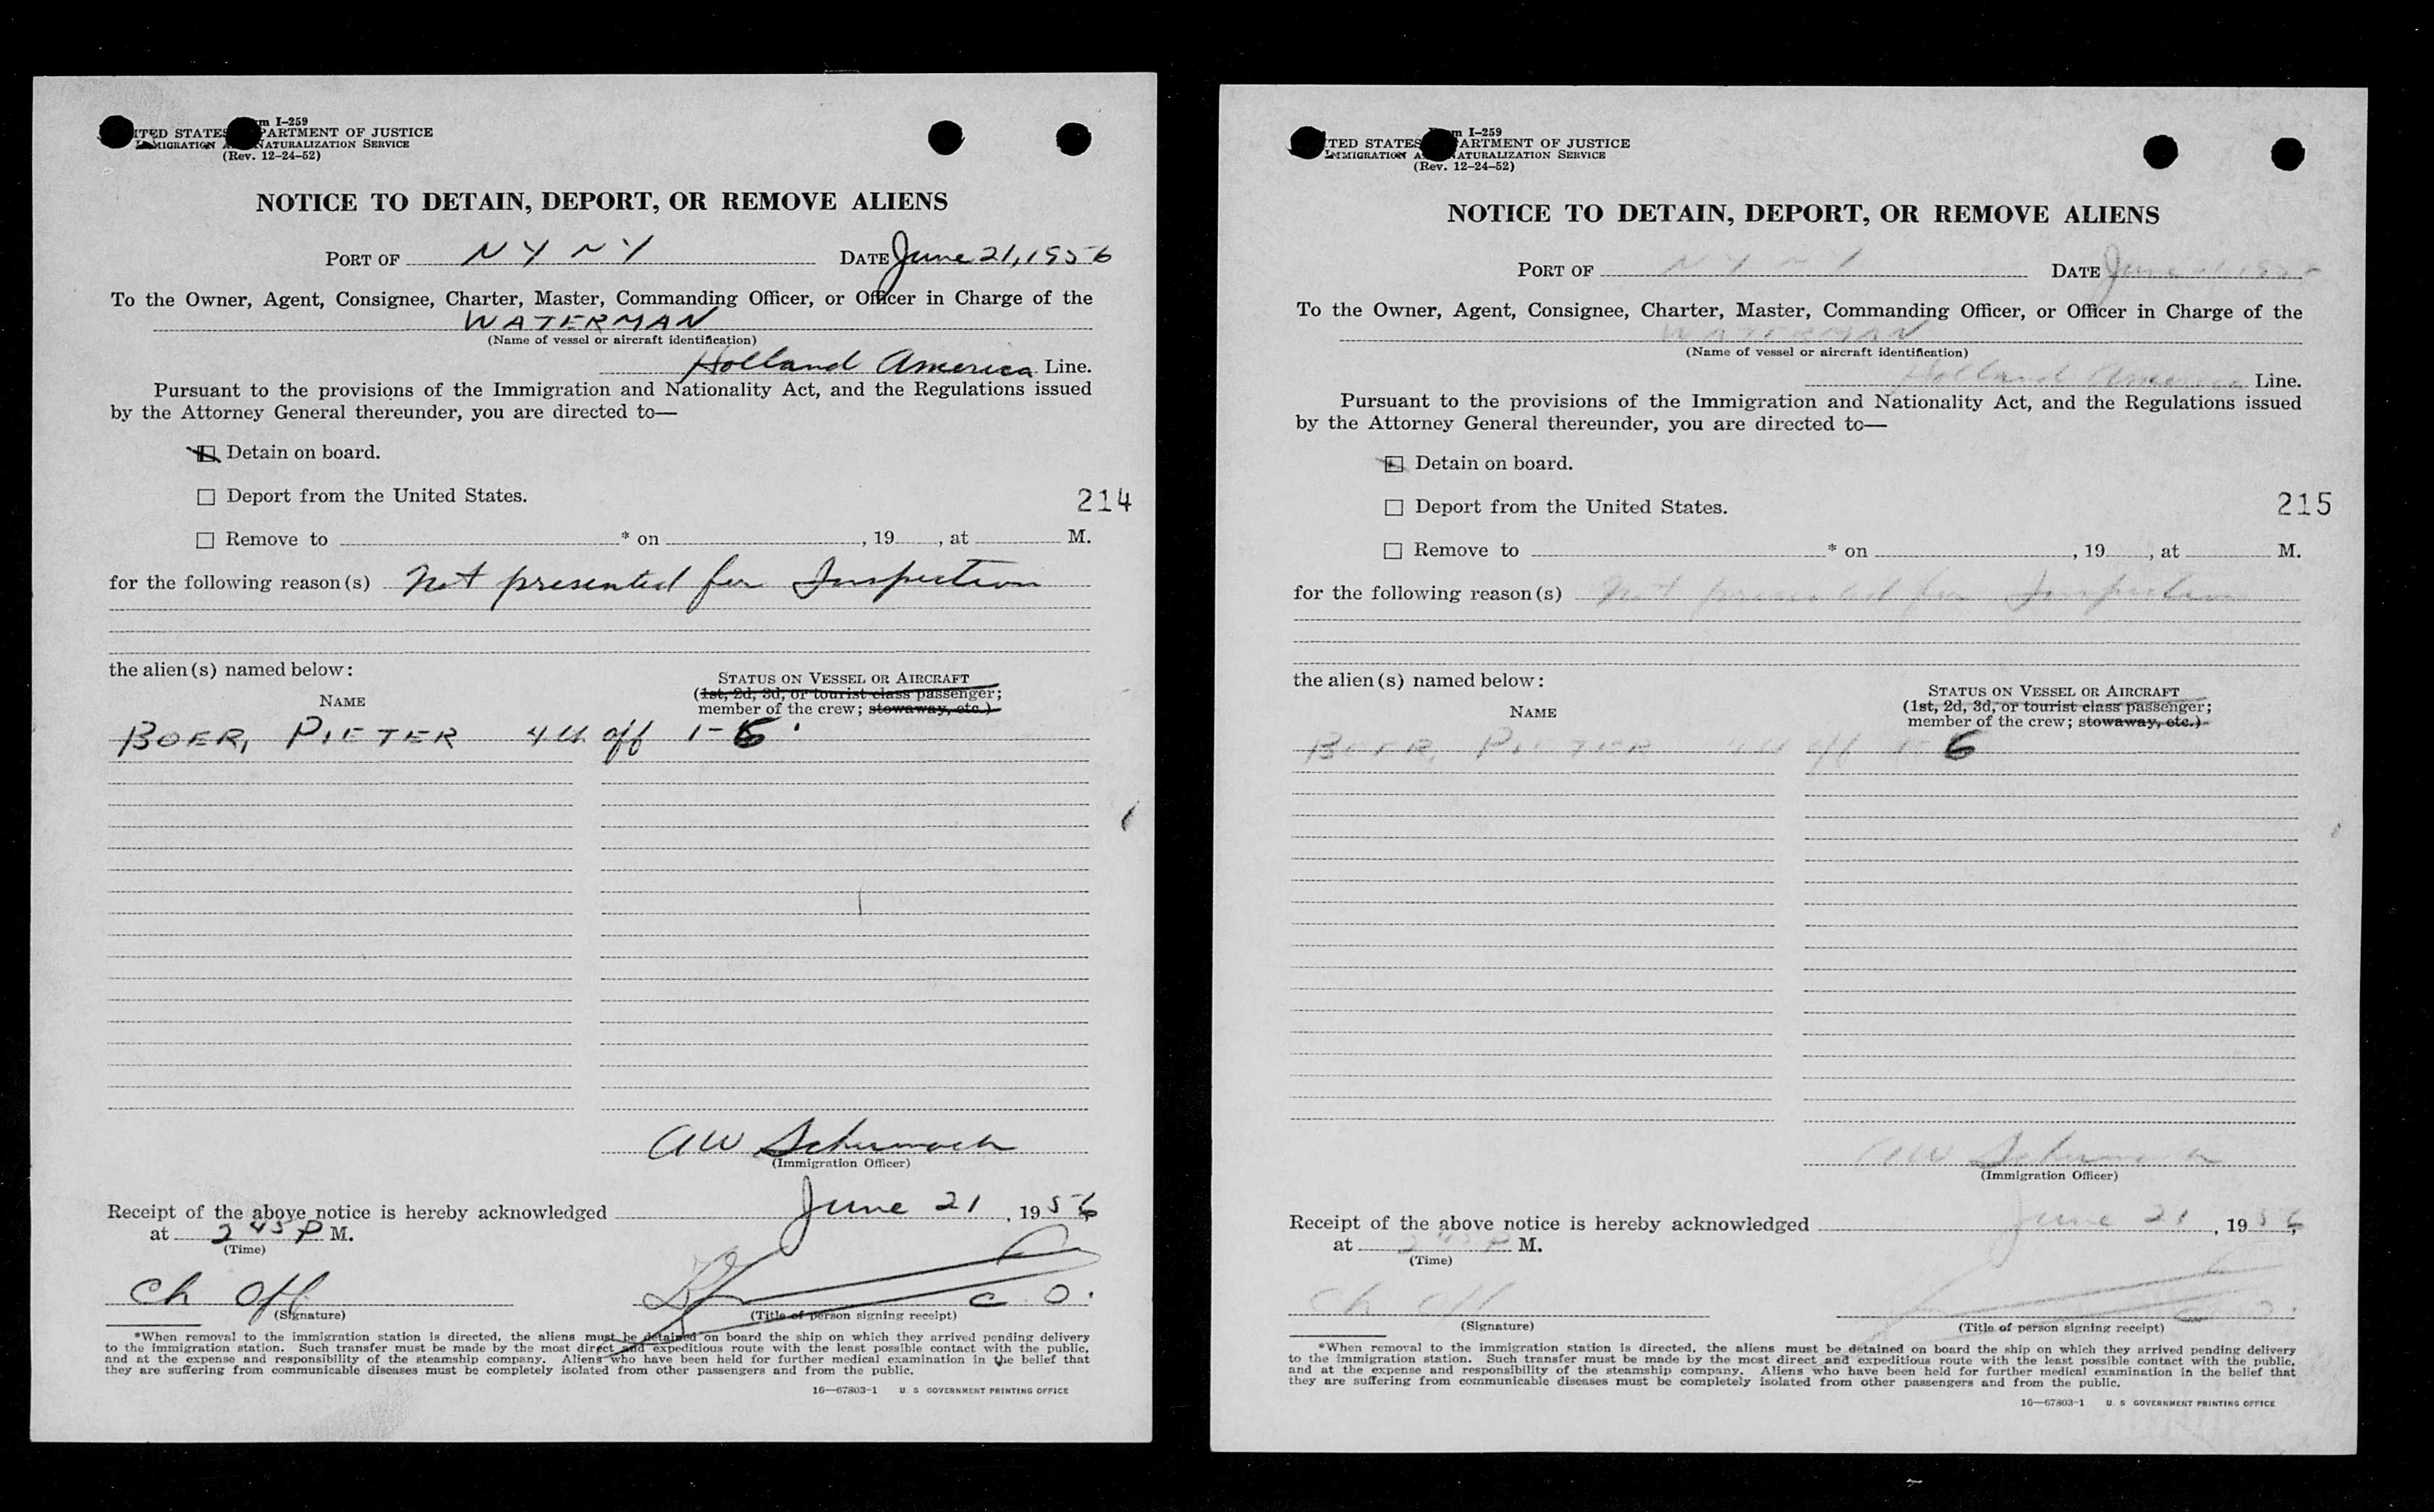 Form I-259
UNITED STATES DEPARTMENT OF JUSTICE
IMMIGRATION AND NATURALIZATION SERVICE
(Rev. 12-24-52)
NOTICE TO DETAIN, DEPORT, OR REMOVE ALIENS
PORT OF N Y N Y DATE June 21, 1956
To the Owner, Agent, Consignee, Charter, Master, Commanding Officer, or Officer in Charge of the
WATERMAN
(Name of vessel or aircraft identification)
Holland America Line.
Pursuant to the provisions of the Immigration and Nationality Act, and the Regulations issued
by the Attorney General thereunder, you are directed to—
Detain on board.
Deport from the United States.
214
Remove to * on , 19 , at M.
for the following reason(s) Not presented for Inspection
the alien(s) named below:
NAME
STATUS ON VESSEL OR AIRCRAFT
(1st, 2d, 3d, or tourist class passenger;
member of the crew; stowaway, etc.)
BOER, PIETER 4th off 1-6
(Immigration Officer)
Receipt of the above notice is hereby acknowledged June 21, 1956
at 2 45 P M.
(Time)
Ch Off C.O.
(Signature) (Title of person signing receipt)
*When removal to the immigration station is directed, the aliens must be detained on board the ship on which they arrived pending delivery
to the immigration station. Such transfer must be made by the most direct and expeditious route with the least possible contact with the public,
and at the expense and responsibility of the steamship company. Aliens who have been held for further medical examination in the belief that
they are suffering from communicable diseases must be completely isolated from other passengers and from the public.
16—67803-1 U. S. GOVERNMENT PRINTING OFFICE
Form I-259
UNITED STATES DEPARTMENT OF JUSTICE
IMMIGRATION AND NATURALIZATION SERVICE
(Rev. 12-24-52)
NOTICE TO DETAIN, DEPORT, OR REMOVE ALIENS
PORT OF N Y N Y DATE June 21, 1956
To the Owner, Agent, Consignee, Charter, Master, Commanding Officer, or Officer in Charge of the
WATERMAN
(Name of vessel or aircraft identification)
Holland America Line.
Pursuant to the provisions of the Immigration and Nationality Act, and the Regulations issued
by the Attorney General thereunder, you are directed to—
Detain on board.
Deport from the United States.
215
Remove to * on , 19 , at M.
for the following reason(s) Not presented for Inspection
the alien(s) named below:
NAME
STATUS ON VESSEL OR AIRCRAFT
(1st, 2d, 3d, or tourist class passenger;
member of the crew; stowaway, etc.)
BOER, PIETER 4th off 1-6
(Immigration Officer)
Receipt of the above notice is hereby acknowledged June 21, 1956
at 2 45 P M.
(Time)
Ch Off C.O.
(Signature) (Title of person signing receipt)
*When removal to the immigration station is directed, the aliens must be detained on board the ship on which they arrived pending delivery
to the immigration station. Such transfer must be made by the most direct and expeditious route with the least possible contact with the public,
and at the expense and responsibility of the steamship company. Aliens who have been held for further medical examination in the belief that
they are suffering from communicable diseases must be completely isolated from other passengers and from the public.
16—67803-1 U. S. GOVERNMENT PRINTING OFFICE